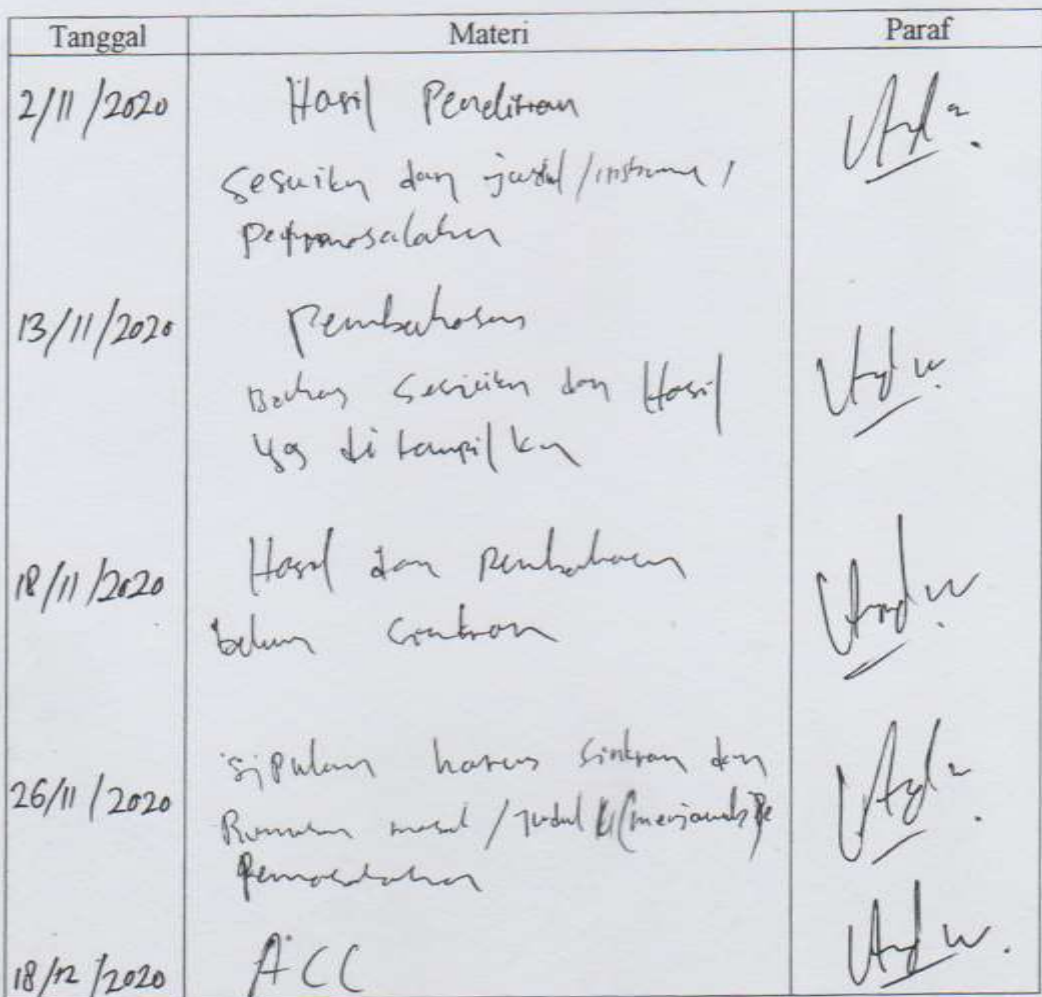 Tanggal Materi Paraf
2/11/2020 Hasil Penelitian
Sesuikn dgn judul/instrumen/
Permasalahan
13/11/2020 Pembahasan
Bahas Sesuikn dgn Hasil
yg di tampilkn
18/11/2020 Hasil dan Pembahasan
belum Sinkron
26/11/2020 Sipulan harus Sinkron dgn
Rumusan masal/judul (menjawab)
Permasalahan
18/12/2020 ACC